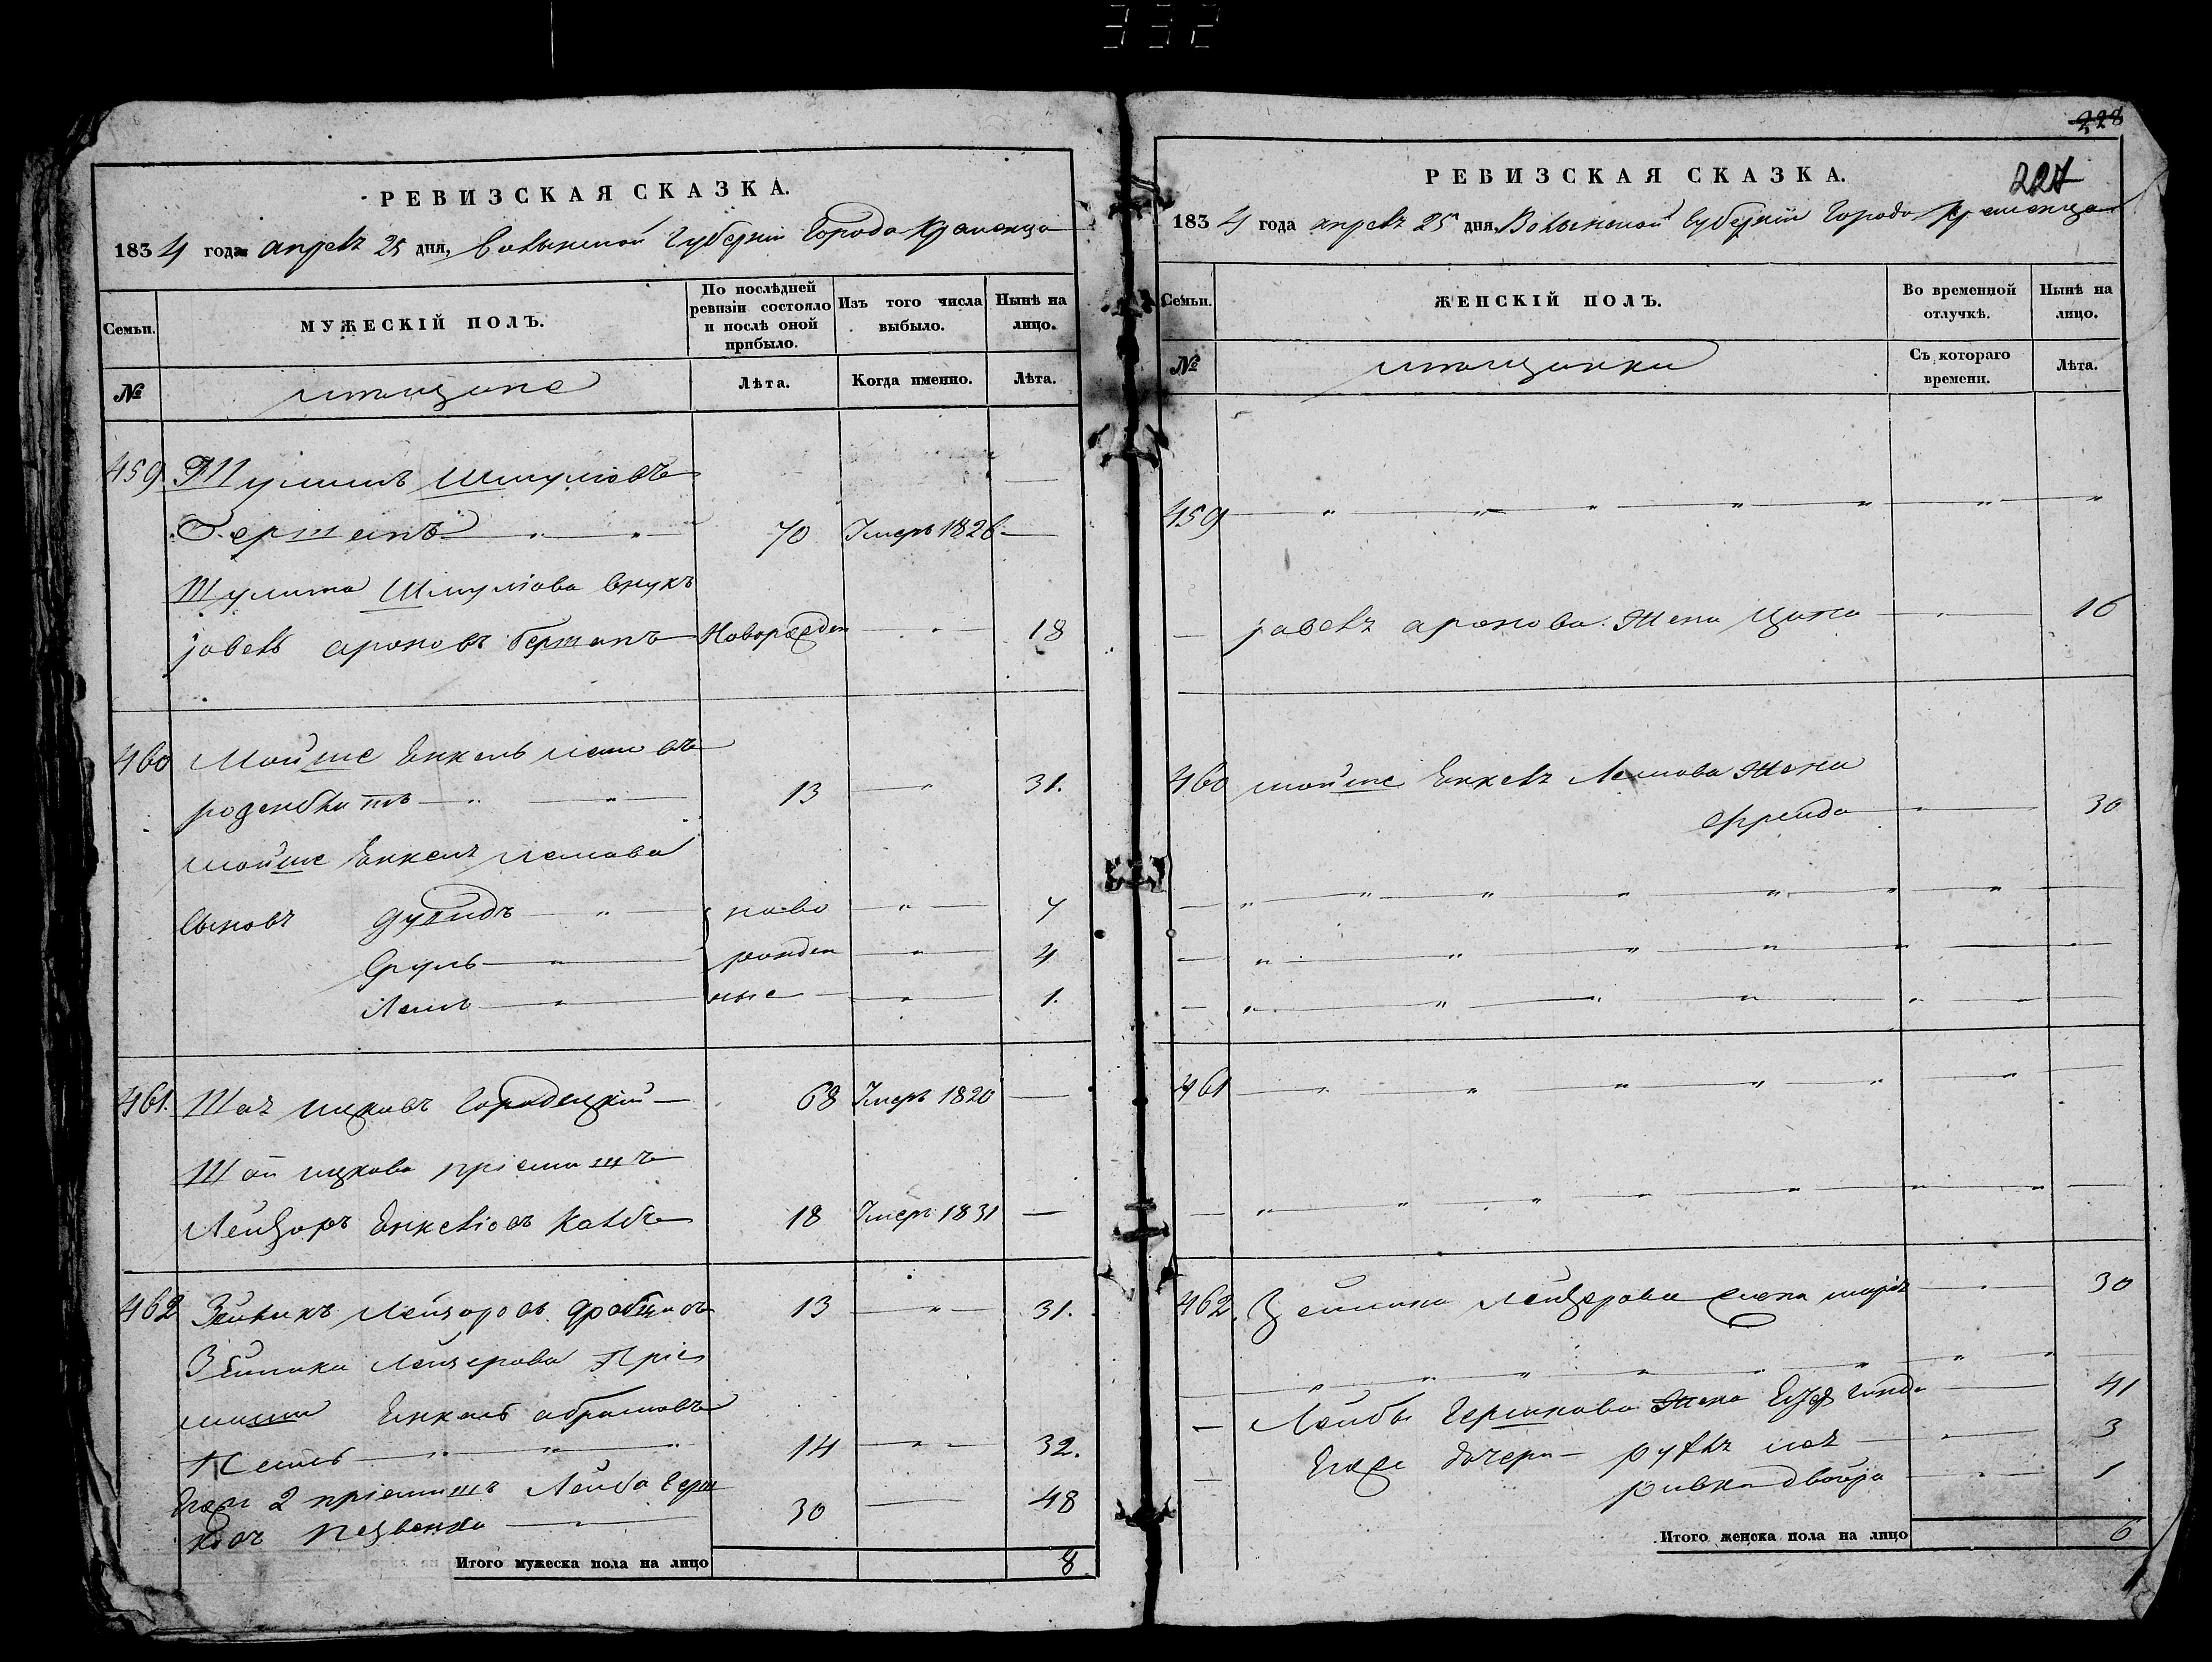 332
РЕВИЗСКАЯ СКАЗКА.
1834 года апрель 25 дня, Волынской Губерніи Города Кременца
Семьи.
МУЖЕСКІЙ ПОЛЪ.
По послѣдней ревизіи состояло и послѣ оной прибыло.
Изъ того числа выбыло.
Нынѣ на лицо.
№
мещане
Лѣта.
Когда именно.
Лѣта.
459 Шулимъ Шмулiовъ —
Германъ — " — " 70 Умеръ 1826 —
Шулима Шмулiова внукъ
Іовель ароновъ Новорожден — " — 18
460 Мойше Енкель Лемовъ
розенблитъ — " — " — 13 — " — 31.
мойше Енкель Лемова
сыновъ Дувидъ — " — ново — " — 7
Сруль — " — рожден — " — 4
Лемъ — " — ные — " — 1.
461. Шая ицковъ Городецкій — 68 Умеръ 1820 —
ицкова пріемишъ
Лейзоръ Енкеліовъ 18 Умеръ 1831 —
462 Зейликъ Лейзоровъ 13 — " — 31.
Зейлика Лейзерова Пріе
мишъ Енкель абрамовъ
— " — " — " 14 — " — 32.
2 пріемишъ Лейба Герш
ковъ — " — 30 — 48
Итого мужеска пола на лицо 8.
228
227
РЕВИЗСКАЯ СКАЗКА.
1834 года апрель 25 дня, Волынской Губерніи Города Кременца
Семьи.
ЖЕНСКІЙ ПОЛЪ.
Во временной отлучкѣ.
Нынѣ на лицо.
№
мещанки
Съ котораго времени.
Лѣта.
459 — " — " — " — " — " — " — "
— Іовель аронова Жена Ципа — " — 16
460 мойше Енкель Лемова Жена
Фрейда — " — 30
— " — " — " — " — " — " — "
— " — " — " — " — " — "
— " — " — " — " — " — "
461 — " — " — " — " — " — "
— " — " — " — " — " — " — "
462. Зейлика Лейзерова жена — " — 30
— " — " — " — " — " — " — "
— Лейбы Гершкова Жена — 41
— Дочери — " — 3
ривка двойра — " — 1
Итого женска пола на лицо 6